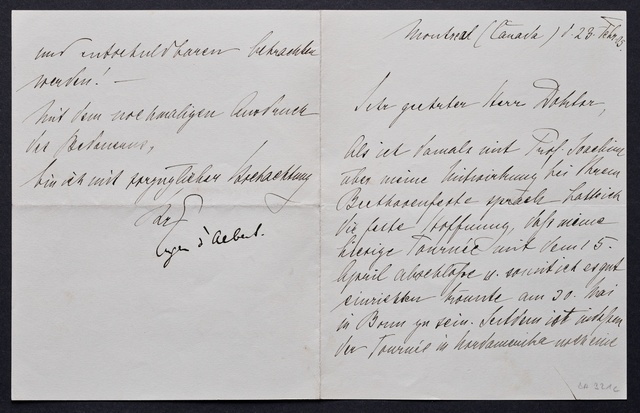 Montreal (Canada) d 28. Febr. 05.
Sehr geehrter Herr Doktor,
Als ich damals mit Prof. Joachim
über meine Mitwirkung bei Ihrem
Beethovenfeste sprach hatte ich
die feste Hoffnung, daß meine
hiesige Tournée mit dem 15.
April abschlöße u. somit ich es gut
einrichten könnte am 30. Mai
in Bonn zu sein. Seitdem ist indessen
der Tournée in Nordamerika noch eine
und entschuldbaren betrachten
werden! —
Mit dem nochmaligen Ausdruck
des Bedauerns,
bin ich mit vorzüglicher Hochachtung
Ihr
Eugen d'Albert.